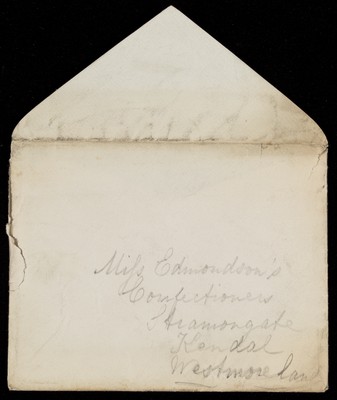 Miss Edmondson's
Confectioners
Stramongate
Kendal
Westmoreland